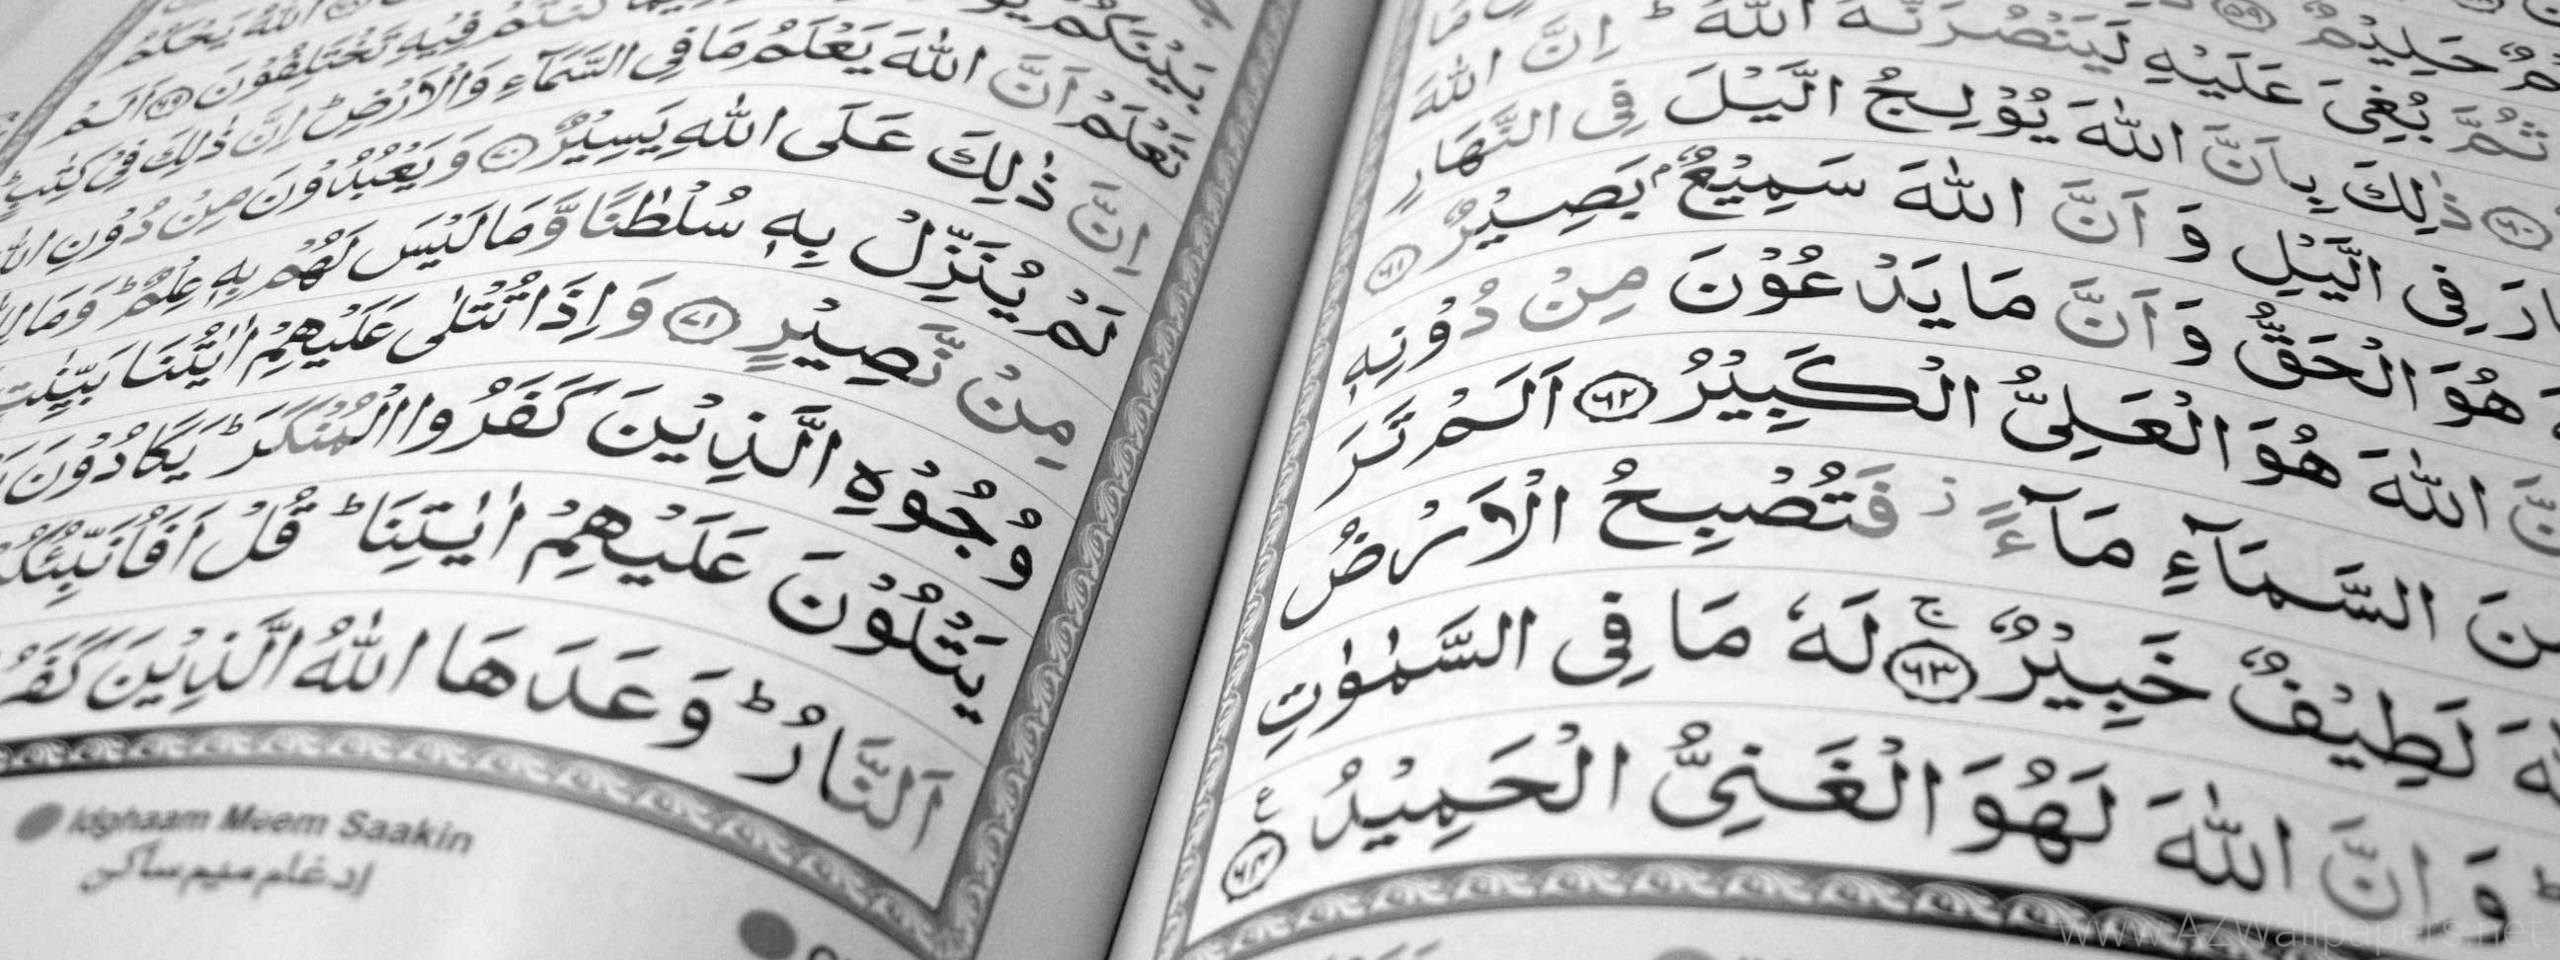 حَلِيْمٌ ۵۹
ثُمَّ بُغِیَ عَلَيْهِ لَيَنْصُرَنَّهُ اللّٰهُ ؕ اِنَّ اللّٰهَ
۶۰ ذٰلِكَ بِاَنَّ اللّٰهَ يُوْلِجُ الَّيْلَ فِی النَّهَارِ
فِی الَّيْلِ وَ اَنَّ اللّٰهَ سَمِيْعٌۢ بَصِيْرٌ ۶۱
هُوَ الْحَقُّ وَ اَنَّ مَا يَدْعُوْنَ مِنْ دُوْنِهٖ
اللّٰهَ هُوَ الْعَلِیُّ الْكَبِيْرُ ۶۲ اَلَمْ تَرَ
السَّمَآءِ مَآءً ؗ فَتُصْبِحُ الْاَرْضُ
لَطِيْفٌ خَبِيْرٌ ۶۳ۚ لَهٗ مَا فِی السَّمٰوٰتِ
وَ اِنَّ اللّٰهَ لَهُوَ الْغَنِیُّ الْحَمِيْدُ ۶۴ ع
بَيْنَكُمْ فِيْهِ تَخْتَلِفُوْنَ ۶۹ اَلَمْ
تَعْلَمْ اَنَّ اللّٰهَ يَعْلَمُ مَا فِی السَّمَآءِ وَالْاَرْضِ ؕ اِنَّ ذٰلِكَ فِیْ كِتٰبٍ ؕ
اِنَّ ذٰلِكَ عَلَى اللّٰهِ يَسِيْرٌ ۷۰ وَ يَعْبُدُوْنَ مِنْ دُوْنِ
لَمْ يُنَزِّلْ بِهٖ سُلْطٰنًا وَّ مَا لَيْسَ لَهُمْ بِهٖ عِلْمٌ ؕ وَمَا
مِنْ نَّصِيْرٍ ۷۱ وَ اِذَا تُتْلٰى عَلَيْهِمْ اٰيٰتُنَا بَيِّنٰتٍ
وُجُوْهِ الَّذِيْنَ كَفَرُوا الْمُنْكَرَ ؕ يَكَادُوْنَ
يَتْلُوْنَ عَلَيْهِمْ اٰيٰتِنَا ؕ قُلْ اَفَاُنَبِّئُكُمْ
اَلنَّارُ ؕ وَعَدَهَا اللّٰهُ الَّذِيْنَ
Idghaam Meem Saakin
إدغام ميم ساكن
www.AZWallpapers.net